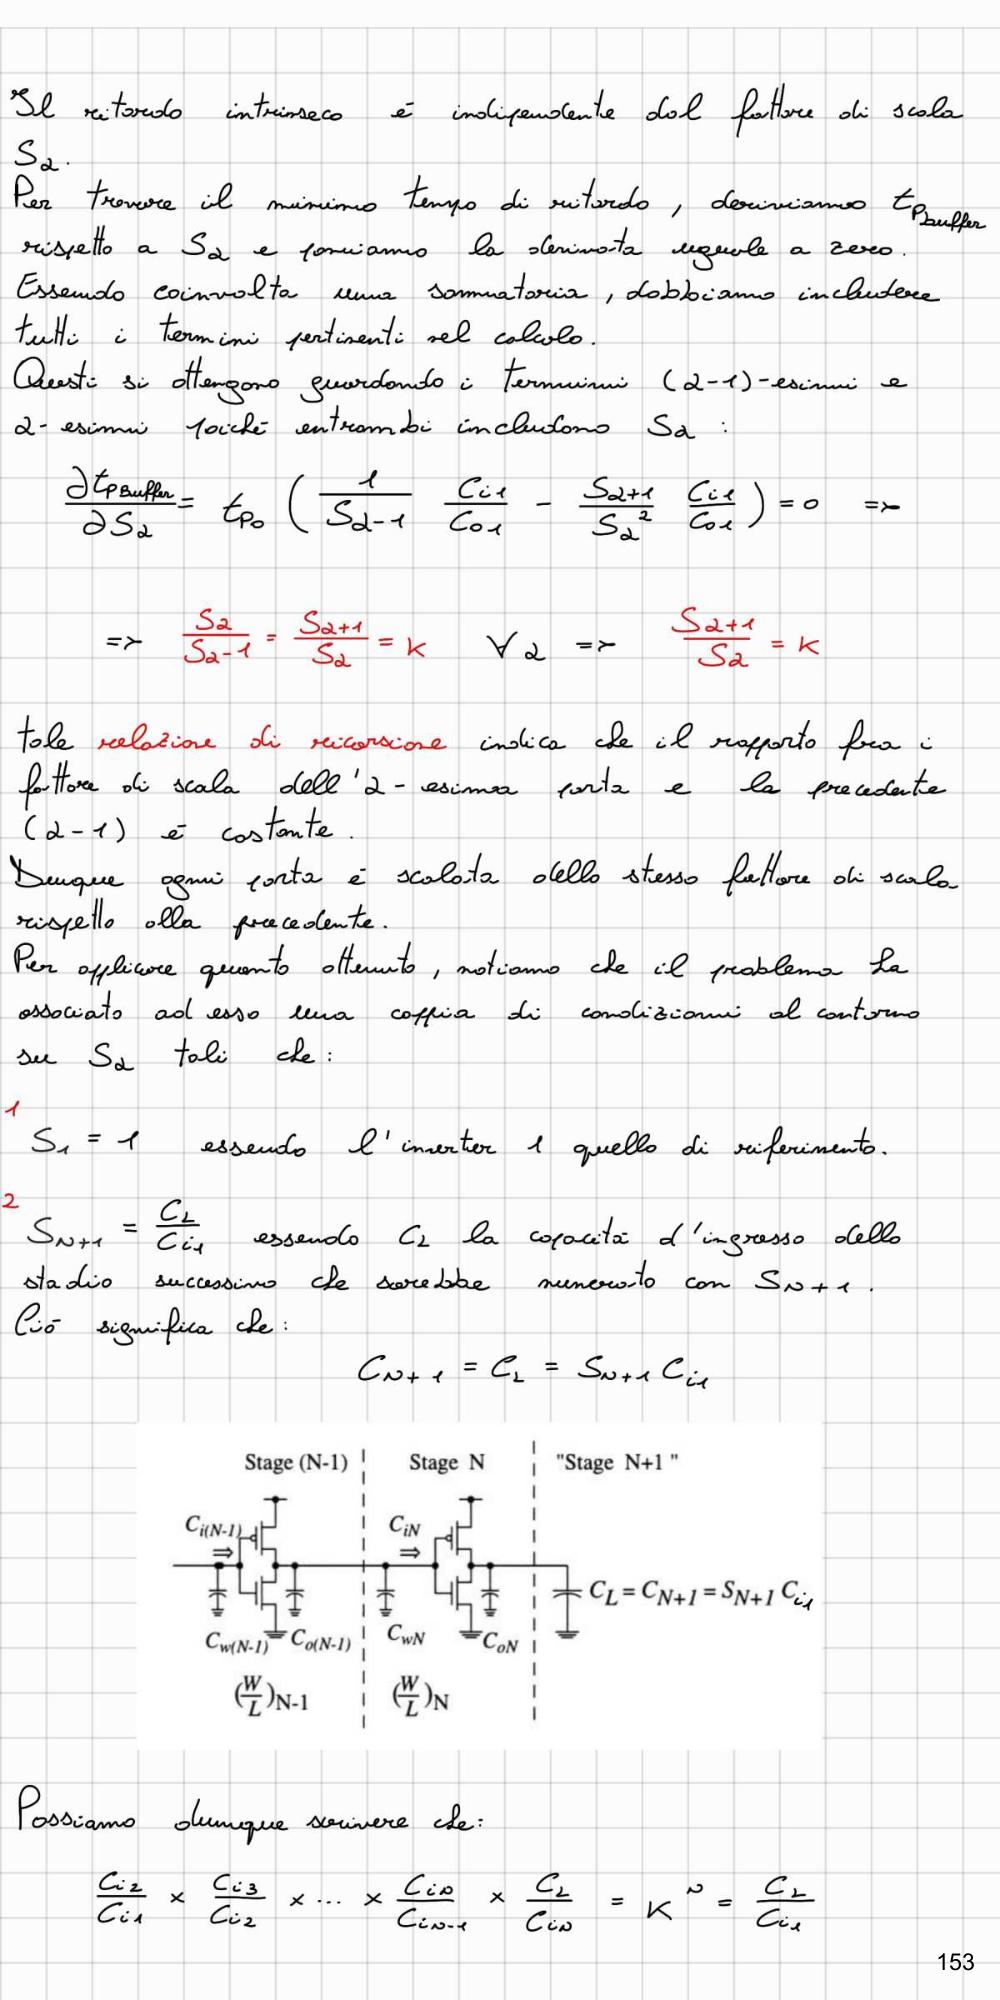 Il ritardo intrinseco è indipendente dal fattore di scala
S₂.
Per trovare il minimo tempo di ritardo, deriviamo t_Pbuffer
rispetto a S₂ e poniamo la derivata uguale a zero.
Essendo coinvolta una sommatoria, dobbiamo includere
tutti i termini pertinenti nel calcolo.
Questi si ottengono guardando i termini (2-1)-esimi e
2-esimi poiché entrambi includono S₂ :
∂t_PBuffer/∂S₂ = t_P0 ( 1/S₂₋₁ C_i1/C_o1 - S₂₊₁/S₂² C_i1/C_o1 ) = 0 =>
=> S₂/S₂₋₁ = S₂₊₁/S₂ = K ∀ 2 => S₂₊₁/S₂ = K
tale relazione di ricorsione indica che il rapporto fra i
fattore di scala dell'2-esima porta e la precedente
(2-1) è costante.
Dunque ogni porta è scalata dello stesso fattore di scala
rispetto alla precedente.
Per applicare quanto ottenuto, notiamo che il problema ha
associato ad esso una coppia di condizioni al contorno
su S₂ tali che:
1
S₁ = 1 essendo l'inverter 1 quello di riferimento.
2
S_N+1 = C_L/C_i1 essendo C_L la capacità d'ingresso dello
stadio successivo che sarebbe numerato con S_N+1.
Ciò significa che:
C_N+1 = C_L = S_N+1 C_i1
Stage (N-1) Stage N "Stage N+1 "
C_i(N-1) C_iN
⇒ ⇒
C_L = C_N+1 = S_N+1 C_i1
C_w(N-1) C_o(N-1) C_wN C_oN
(W/L)_N-1 (W/L)_N
Possiamo dunque scrivere che:
C_i2/C_i1 × C_i3/C_i2 × ... × C_iN/C_iN-1 × C_L/C_iN = K^N = C_L/C_i1
153